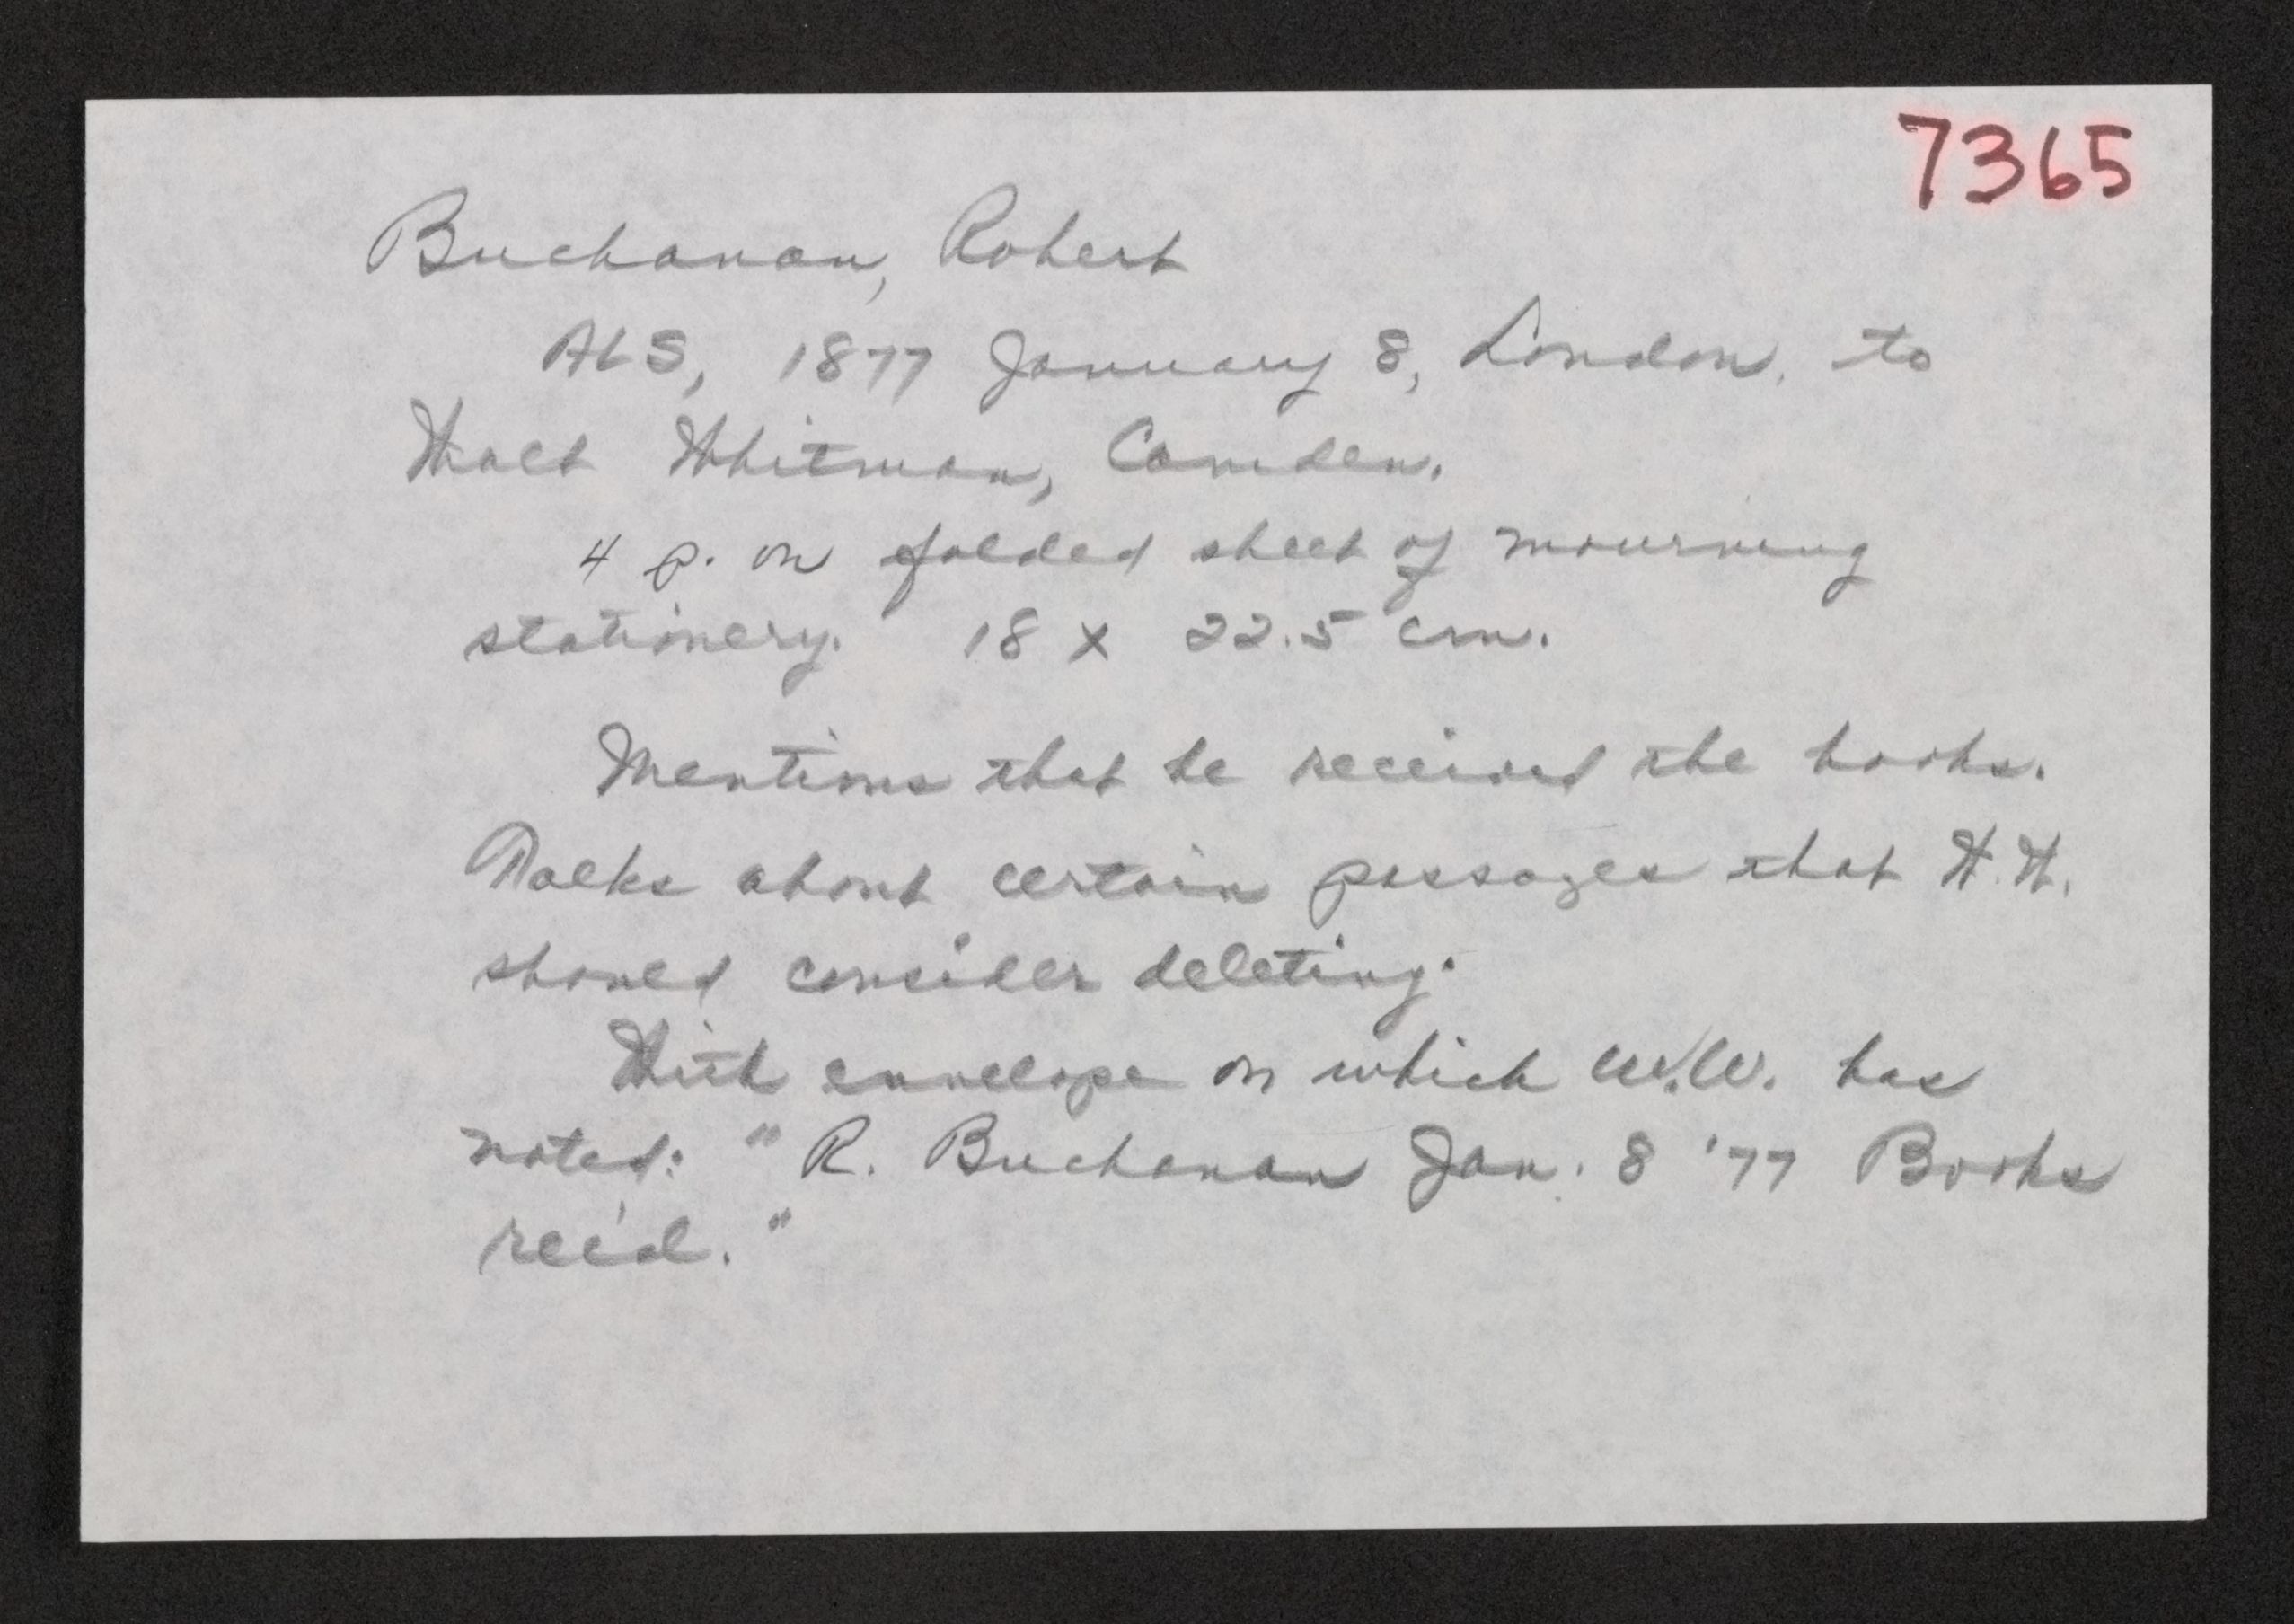 7365
Buchanan, Robert
ALS, 1877 January 8, London, to
Walt Whitman, Camden.
4 p. on folded sheet of mourning
stationery. 18 x 22.5 cm.
Mentions that he received the books.
Talks about certain passages that W.W.
should consider deleting.
With envelope on which W.W. has
noted: "R. Buchanan Jan. 8 '77 Books
rec'd."